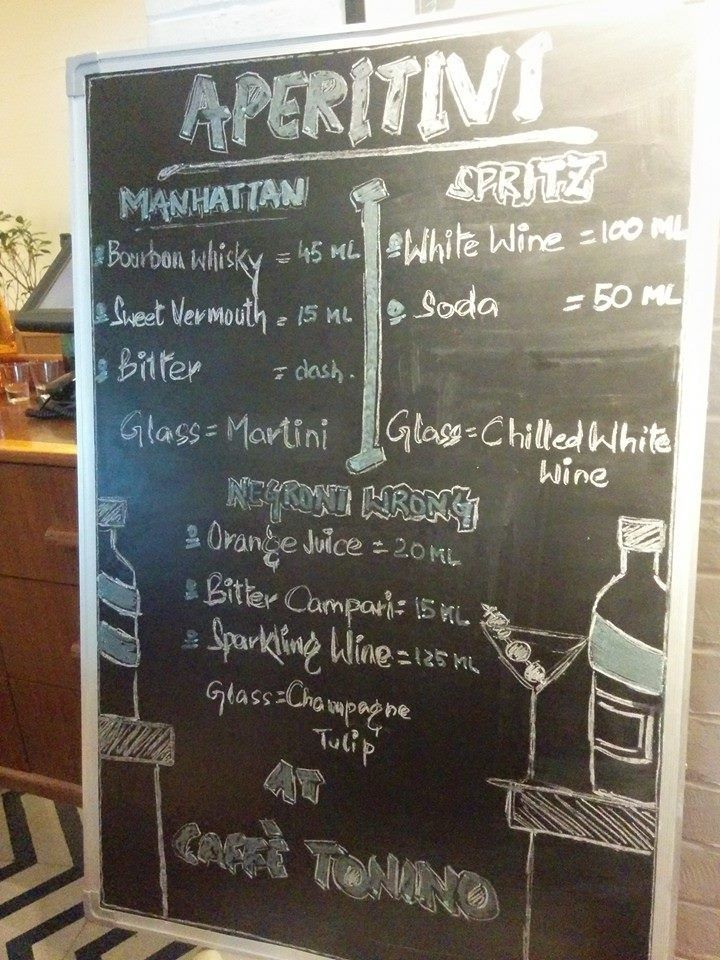 APERITIVI
MANHATTAN
Bourbon whisky = 45 ML
Sweet Vermouth = 15 ML
Bitter = dash.
Glass = Martini
SPRITZ
White Wine = 100 ML
Soda = 50 ML
Glass = Chilled White
Wine
NEGRONI WRONG
Orange Juice = 20 ML
Bitter Campari = 15 ML
Sparkling Wine = 125 ML
Glass = Champagne
Tulip
AT
CAFFÈ TONINO